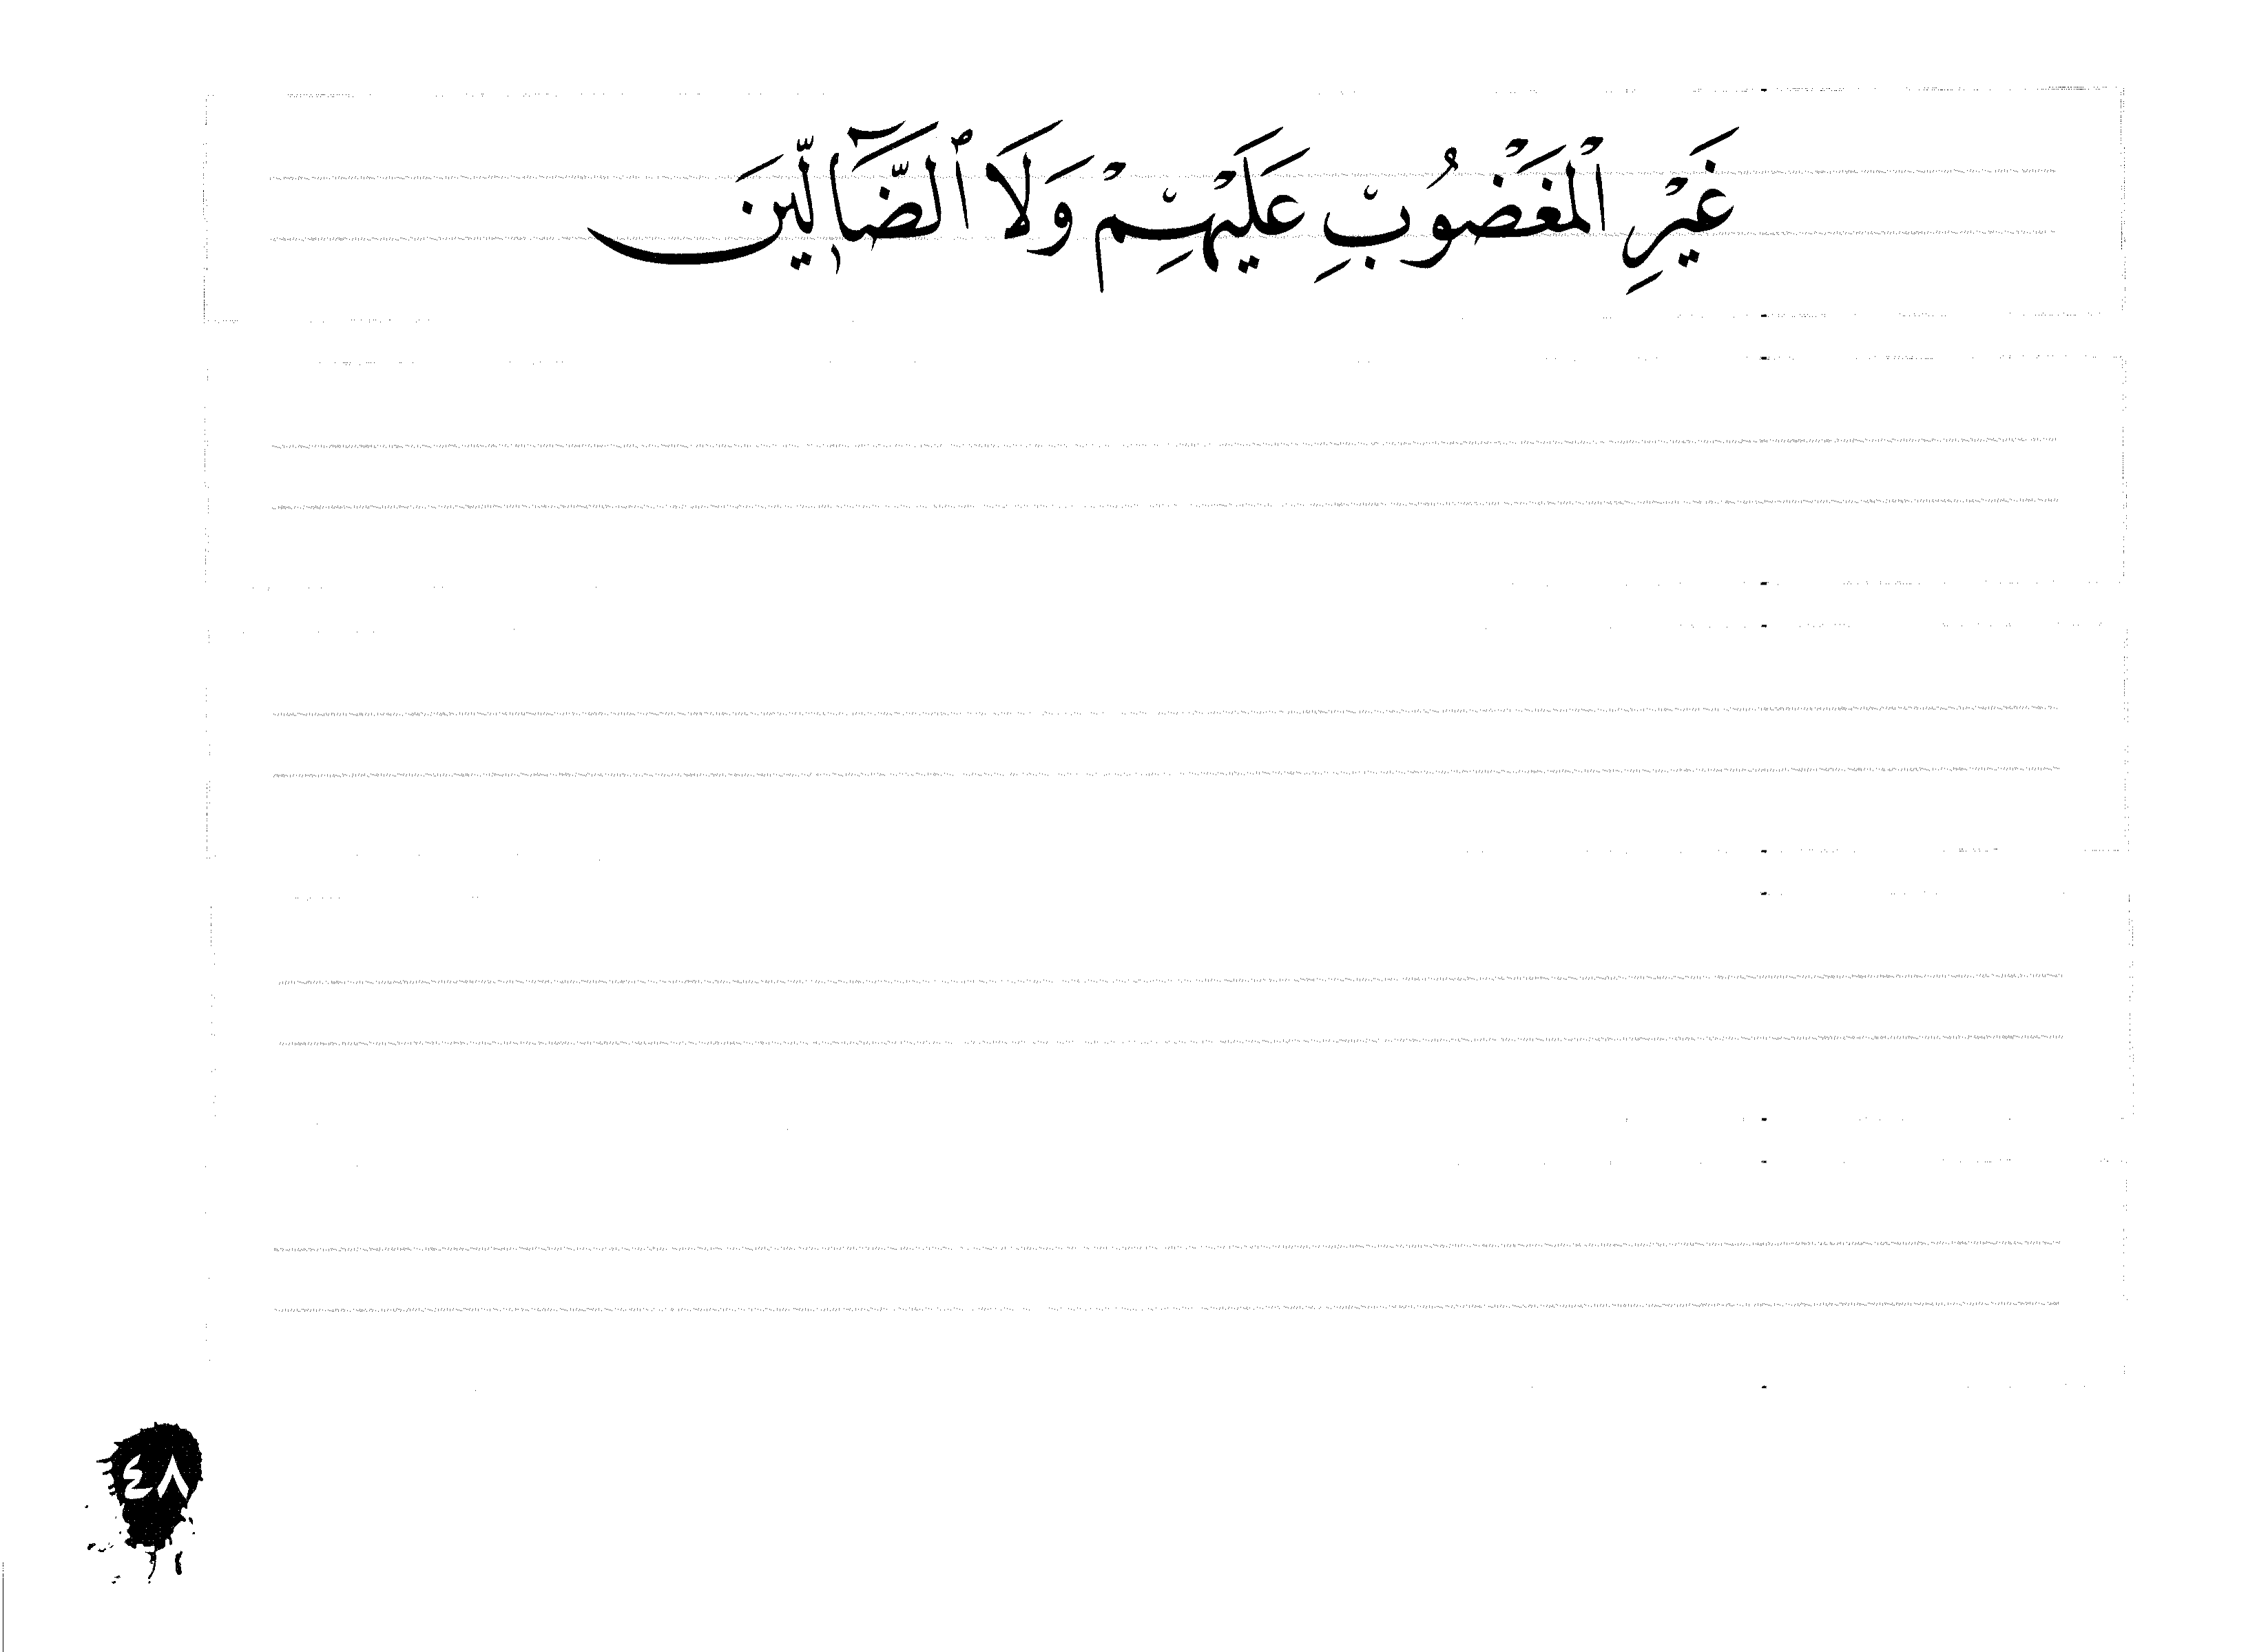 غَيْرِ الْمَغْضُوبِ عَلَيْهِمْ وَلَا ٱلضَّآلِّينَ
٤٨